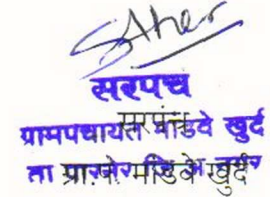 सरपंच
सरपंच
ग्रामपंचायत मांडवे खुर्द
ता
ग्रा.पं. मांडवे खुर्द